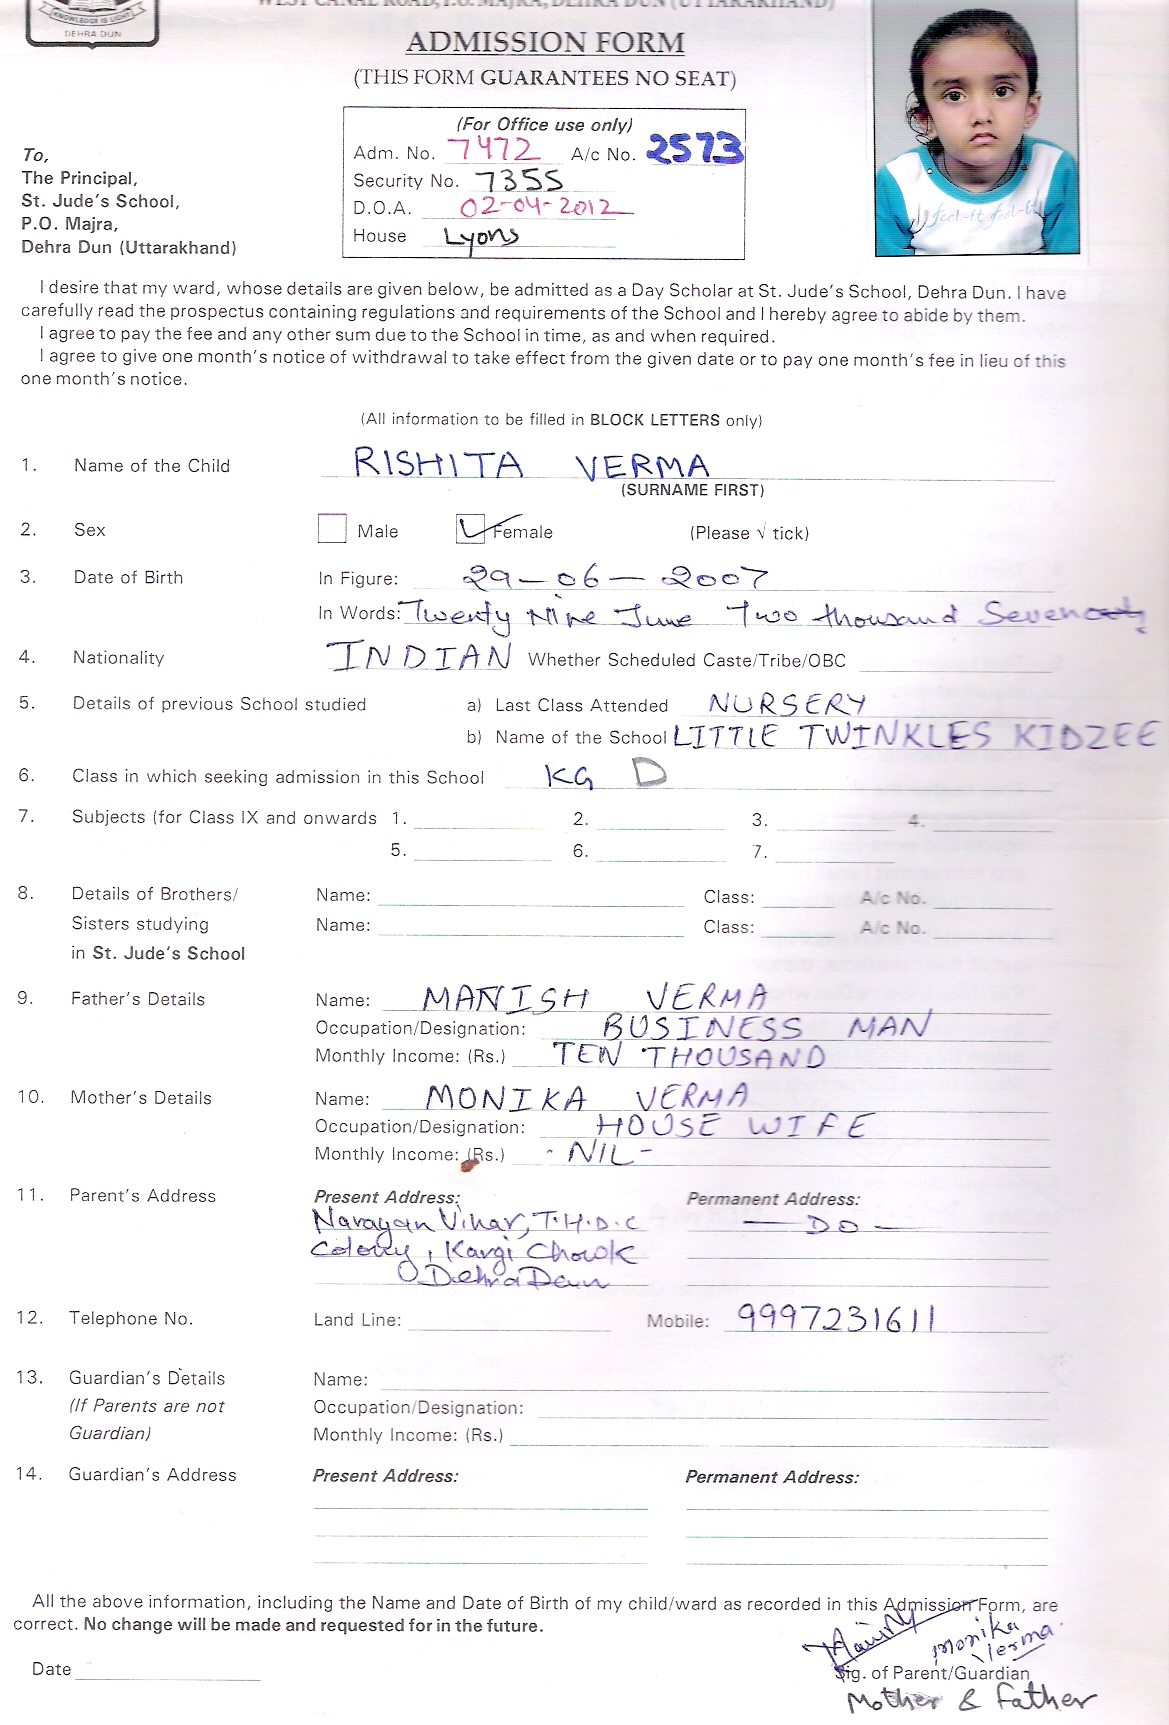 WEST CANAL ROAD, P.O. MAJRA, DEHRA DUN (UTTARAKHAND)
KNOWLEDGE IS LIGHT
DEHRA DUN
ADMISSION FORM
(THIS FORM GUARANTEES NO SEAT)
(For Office use only)
Adm. No. 7472 A/c No. 2573
Security No. 7355
D.O.A. 02-04-2012
House Lyons
To,
The Principal,
St. Jude's School,
P.O. Majra,
Dehra Dun (Uttarakhand)
feel-it feel-it
I desire that my ward, whose details are given below, be admitted as a Day Scholar at St. Jude's School, Dehra Dun. I have
carefully read the prospectus containing regulations and requirements of the School and I hereby agree to abide by them.
I agree to pay the fee and any other sum due to the School in time, as and when required.
I agree to give one month's notice of withdrawal to take effect from the given date or to pay one month's fee in lieu of this
one month's notice.
(All information to be filled in BLOCK LETTERS only)
1. Name of the Child RISHITA VERMA
(SURNAME FIRST)
2. Sex Male Female (Please √ tick)
3. Date of Birth In Figure: 29-06-2007
In Words: Twenty Nine June Two thousand Seven
4. Nationality INDIAN Whether Scheduled Caste/Tribe/OBC
5. Details of previous School studied a) Last Class Attended NURSERY
b) Name of the School LITTLE TWINKLES KIDZEE
6. Class in which seeking admission in this School KG D
7. Subjects (for Class IX and onwards 1. 2. 3. 4.
5. 6. 7.
8. Details of Brothers/ Name: Class: A/c No.
Sisters studying Name: Class: A/c No.
in St. Jude's School
9. Father's Details Name: MANISH VERMA
Occupation/Designation: BUSINESS MAN
Monthly Income: (Rs.) TEN THOUSAND
10. Mother's Details Name: MONIKA VERMA
Occupation/Designation: HOUSE WIFE
Monthly Income: (Rs.) - NIL -
11. Parent's Address Present Address: Permanent Address:
Narayan Vihar, T.H.D.C — DO —
Colony, Kargi Chowk
Dehra Dun
12. Telephone No. Land Line: Mobile: 9997231611
13. Guardian's Details Name:
(If Parents are not Occupation/Designation:
Guardian) Monthly Income: (Rs.)
14. Guardian's Address Present Address: Permanent Address:
All the above information, including the Name and Date of Birth of my child/ward as recorded in this Admission Form, are
correct. No change will be made and requested for in the future.
Monika
Verma
Date Sig. of Parent/Guardian
Mother & Father